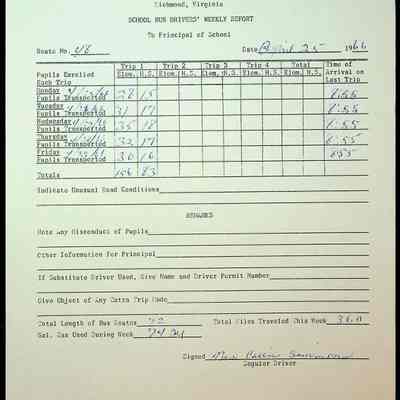 Richmond, Virginia
SCHOOL BUS DRIVERS' WEEKLY REPORT
To Principal of School
Route No. 48 Date April 25 1966
Trip 1 Trip 2 Trip 3 Trip 4 Total Time of
Pupils Enrolled Elem. H.S. Elem. H.S. Elem. H.S. Elem. H.S. Elem. H.S. Arrival on
Each Trip Last Trip
Monday
Pupils Transported 28 15 8:55
Tuesday
Pupils Transported 31 17 8:55
Wednesday
Pupils Transported 35 18 8:55
Thursday
Pupils Transported 32 17 8:55
Friday
Pupils Transported 30 16 855
Totals 156 83
Indicate Unusual Road Conditions
REMARKS
Note Any Misconduct of Pupils
Other Information for Principal
If Substitute Driver Used, Give Name and Driver Permit Number
Give Object of Any Extra Trip Made
Total Length of Bus Routes Total Miles Traveled This Week
Gal. Gas Used During Week
Signed Mrs.
Regular Driver